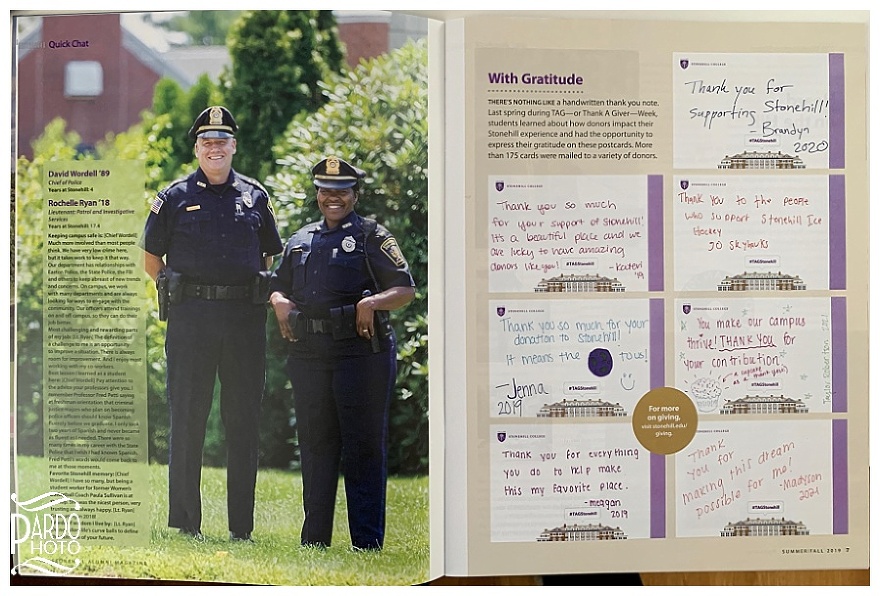 Quick Chat
David Wordell '89
Chief of Police
Years at Stonehill: 4
Rochelle Ryan '18
Lieutenant: Patrol and Investigative
Services
Years at Stonehill: 17.4
Keeping campus safe is: [Chief Wordell]
Much more involved than most people
think. We have very low crime here,
but it takes work to keep it that way.
Our department has relationships with
Easton Police, the State Police, the FBI
and others to keep abreast of new trends
and concerns. On campus, we work
with many departments and are always
looking for ways to engage with the
community. Our officers attend trainings
on and off campus, so they can do their
job better.
Most challenging and rewarding parts
of my job: [Lt. Ryan] The definition of
a challenge to me is an opportunity
to improve a situation. There is always
room for improvement. And I enjoy most
working with my co-workers.
Best lesson I learned as a student
here: [Chief Wordell] Pay attention to
the advice your professors give you. I
remember Professor Fred Petti saying
at freshman orientation that criminal
justice majors who plan on becoming
police officers should know Spanish
me at those moments.
Favorite Stonehill memory: [Chief
Wordell] I have so many, but being a
student worker for former Women's
Coach Paula Sullivan is at
was the nicest person, very
trusting always happy. [Lt. Ryan]
2018!
live by: [Lt. Ryan]
life's curve balls to define
of your future.
ALUMNI MAGAZINE
PARDO
PHOTO
With Gratitude
THERE'S NOTHING LIKE a handwritten thank you note.
Last spring during TAG—or Thank A Giver—Week,
students learned about how donors impact their
Stonehill experience and had the opportunity to
express their gratitude on these postcards. More
than 175 cards were mailed to a variety of donors.
STONEHILL COLLEGE
Thank you for
supporting Stonehill!
- Brandyn
2020
#TAGStonehill
STONEHILL COLLEGE
Thank you so much
for your support of Stonehill!
It's a beautiful place and we
are lucky to have amazing
donors like you!
- Kateri
'19
#TAGStonehill
STONEHILL COLLEGE
Thank you to the people
who support Stonehill Ice
Hockey
GO Skyhawks
#TAGStonehill
STONEHILL COLLEGE
Thank you so much for your
donation to Stonehill!
It means the to us!
- Jenna
2019
#TAGStonehill
STONEHILL COLLEGE
You make our campus
thrive! THANK YOU for
your contribution
(a cupcake
as a thank you)
Taylor
#TAGStonehill
For more
on giving,
visit stonehill.edu/
giving.
STONEHILL COLLEGE
Thank you for everything
you do to help make
this my favorite place.
- meggan
2019
#TAGStonehill
Thank
you for
making this dream
possible for me!
- Madyson
2021
#TAGStonehill
SUMMER/FALL 2019